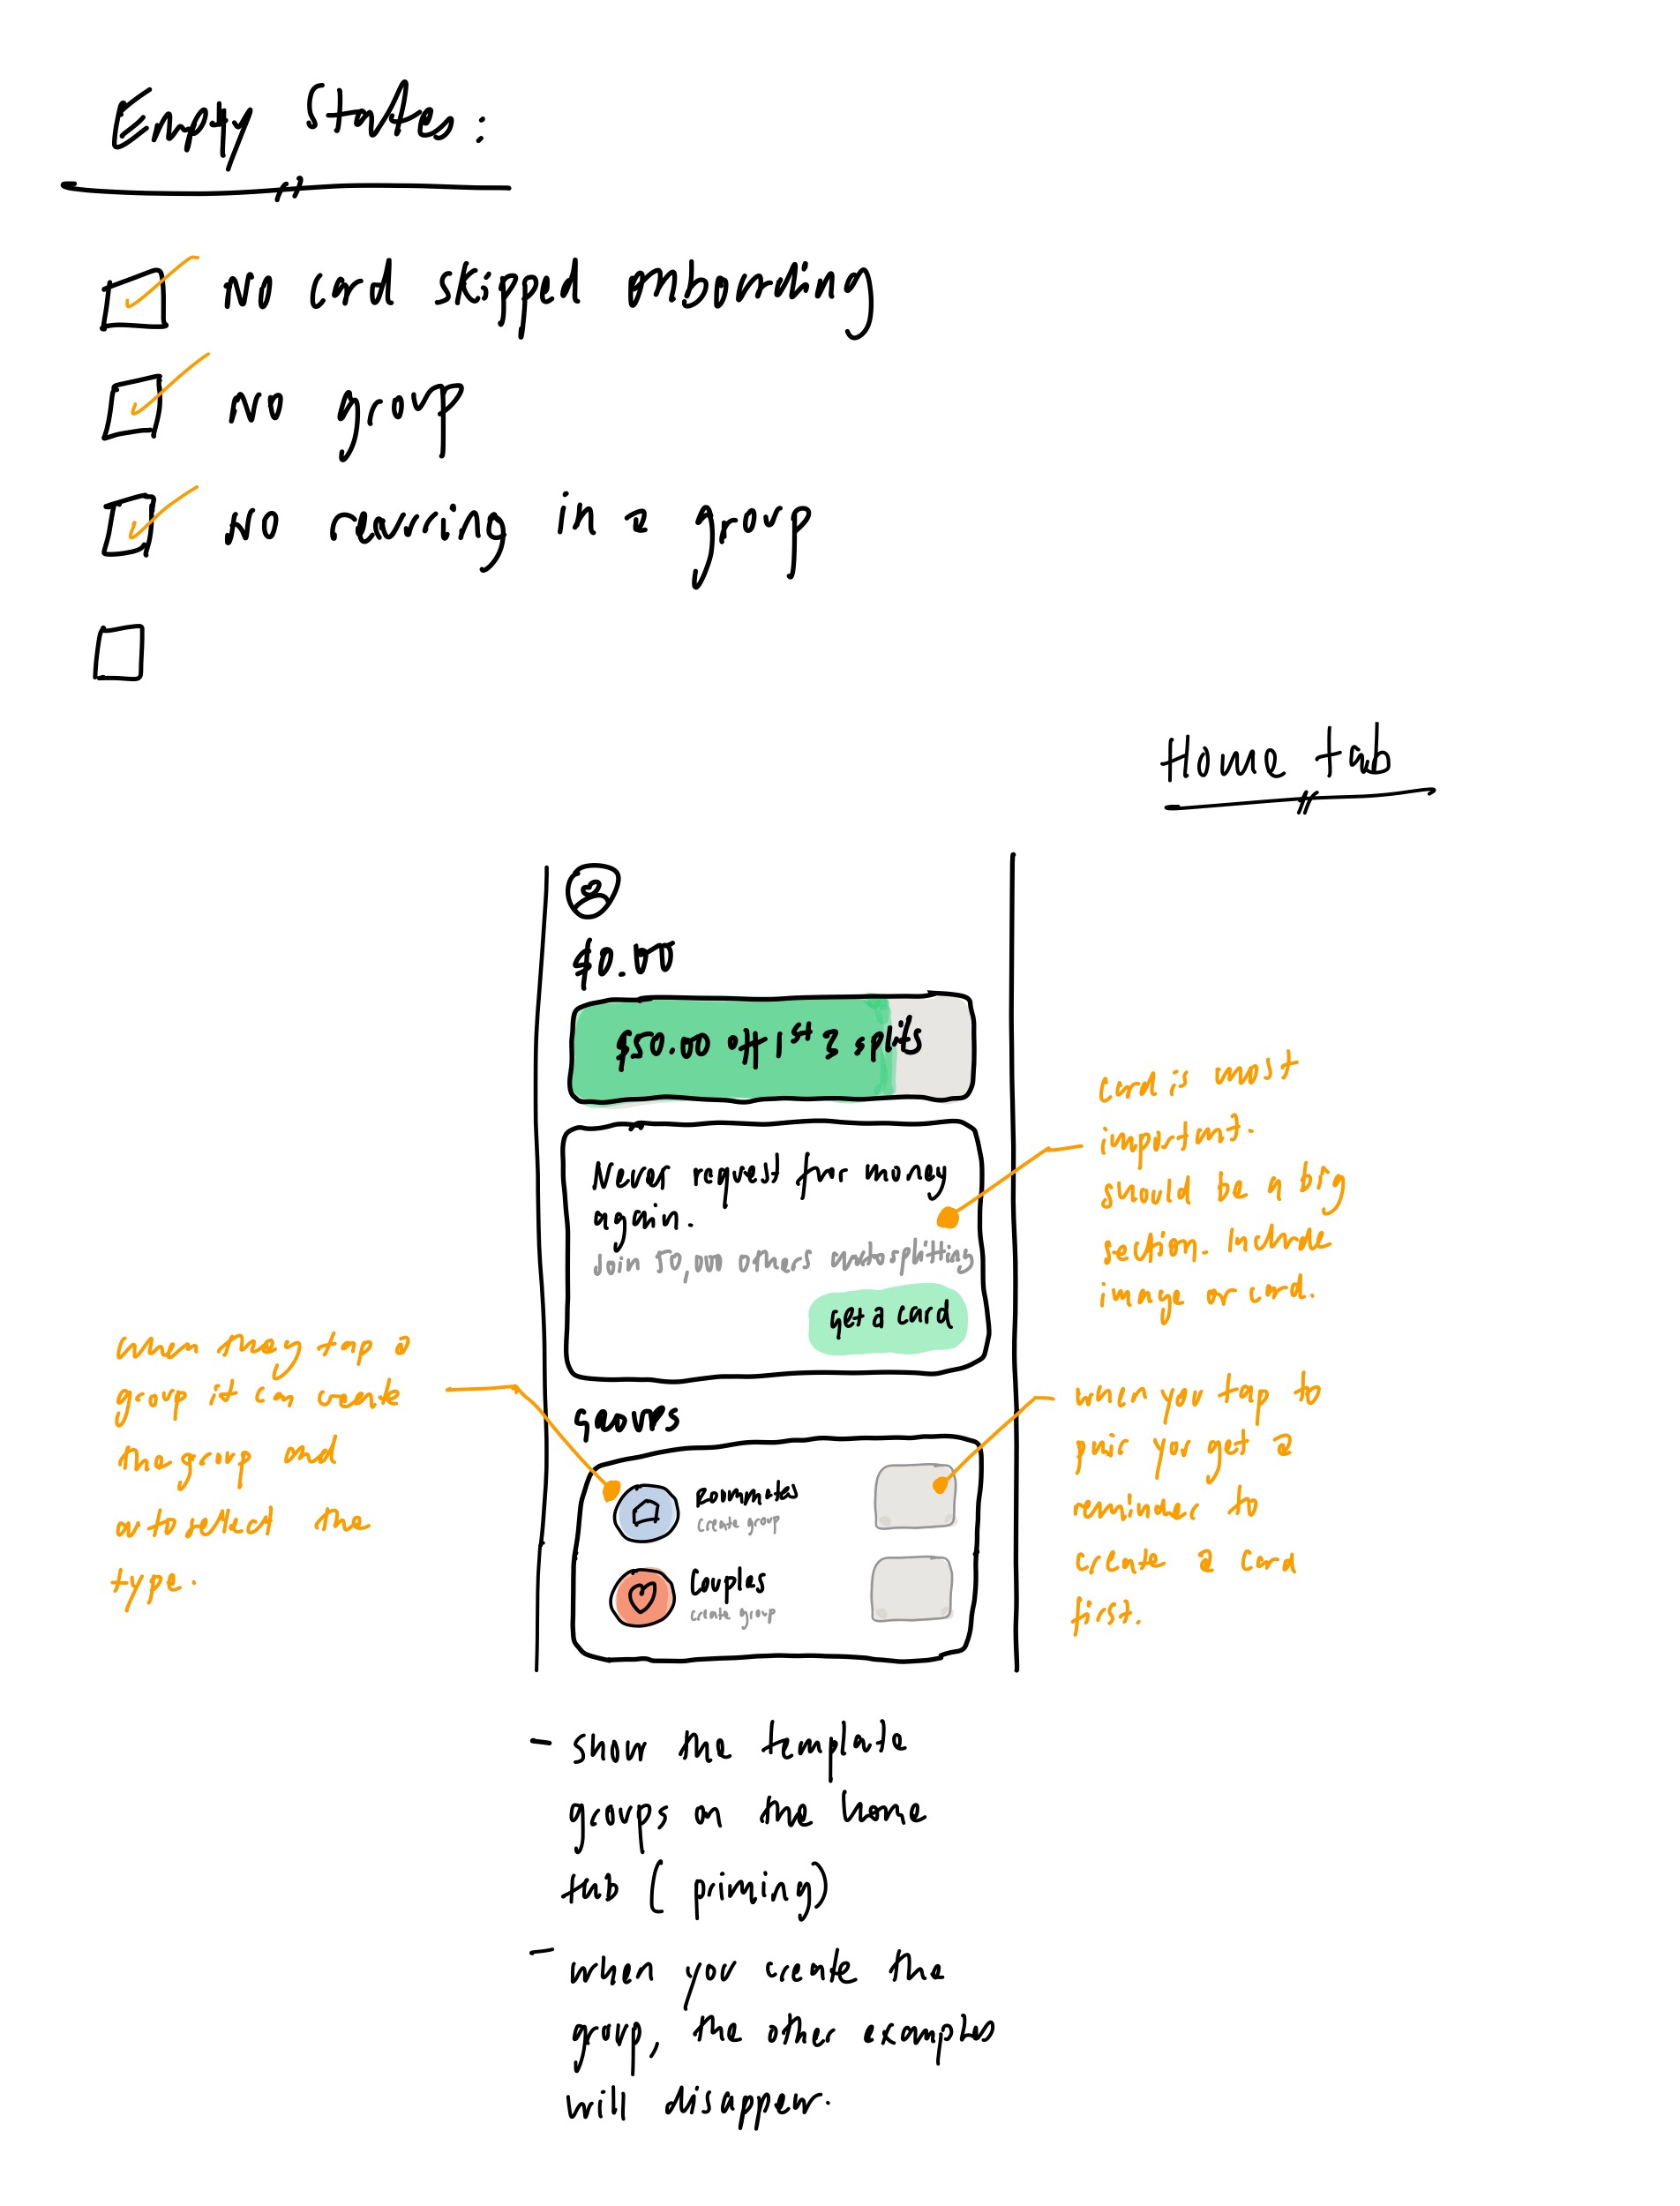 Empty States:
No card skipped onboarding
No group
No recurring in a group
Home tab
$0.00
$50.00 off 1st 3 splits
Never request for money
again.
Join 50,000 others autosplitting
get a card
Groups
Roommates
create group
Couples
create group
card is most
important.
should be a big
section. Include
image or card.
when they tap a
group it can create
the group and
autoselect the
type.
when you tap to
pair you get a
reminder to
create a card
first.
- show the template
groups on the home
tab (priming)
- when you create the
group, the other examples
will disappear.